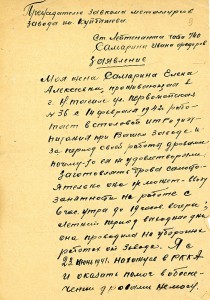 Председателю завкома металлургов
завода им. Куйбышева
От Лейтенанта части 740
Самарина Ивана Федоров
Заявление
Моя жена Самарина Елена
Алексеевна, проживающая в
г. Н. ул. Первомайская
№ 36 с 14 февраля 1942 г. рабо-
тает в столовой
питания при Вашем заводе и
за период своей работы дровами
почему-то не удовлетворена.
Заготовлять дрова самосто-
ятельно она не может. Ибо
занятность на работе с
8 час. утра до 10 часов вечера;
летний период выходные дни
она проводила на уборочных
работах от завода. Я а
23 июня 1941 г. нахожусь в РККА
и оказать помощь в обеспе-
чении дровами не могу.